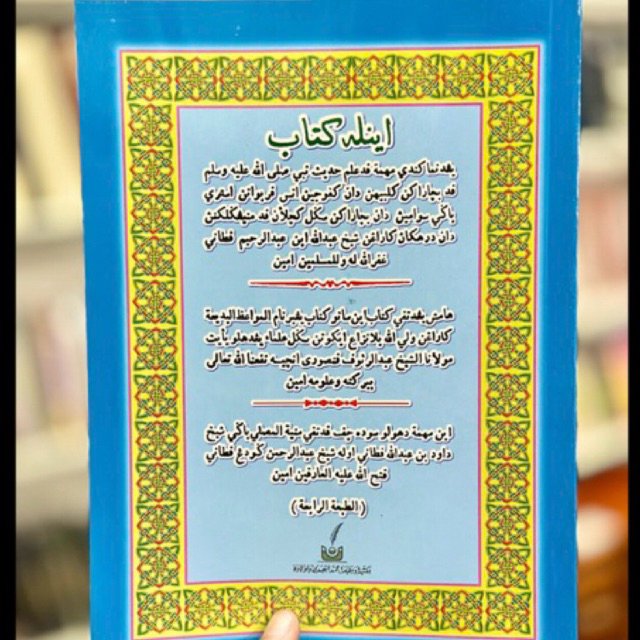 اينله كتاب
يڠدناكندي مهمة قد علم حديث نبي صلى الله عليه وسلم
قد بچاراكن كلبيهن دان كنوجين اتس فربواتن استري
باكي سوامين دان بچاراكن سكل كجلان قد منيڠكلكنن
دان درهكان كارڠن شيخ عبدالله ابن عبدالرحيم فطاني
غفر الله له وللمسلمين امين
هامش يڠد تفي كتاب اين ساتو كتاب يڠبرنام المواعظ البديعة
كارڠن ولي الله بلا نزاع ايكوتن سكل علماء يڠدهولو يأيت
مولانا الشيخ عبدالرئوف فنصوري اتجيه نفعنا الله تعالى
ببركته وعلومه امين
اين مهمة دهولو سوده چيتق قد تفي منية المصلي باكي شيخ
داود بن عبدالله فطاني اوله شيخ عبدالرحمن كودڠ فطاني
فتح الله عليه العارفين امين
(الطبعة الرابعة)